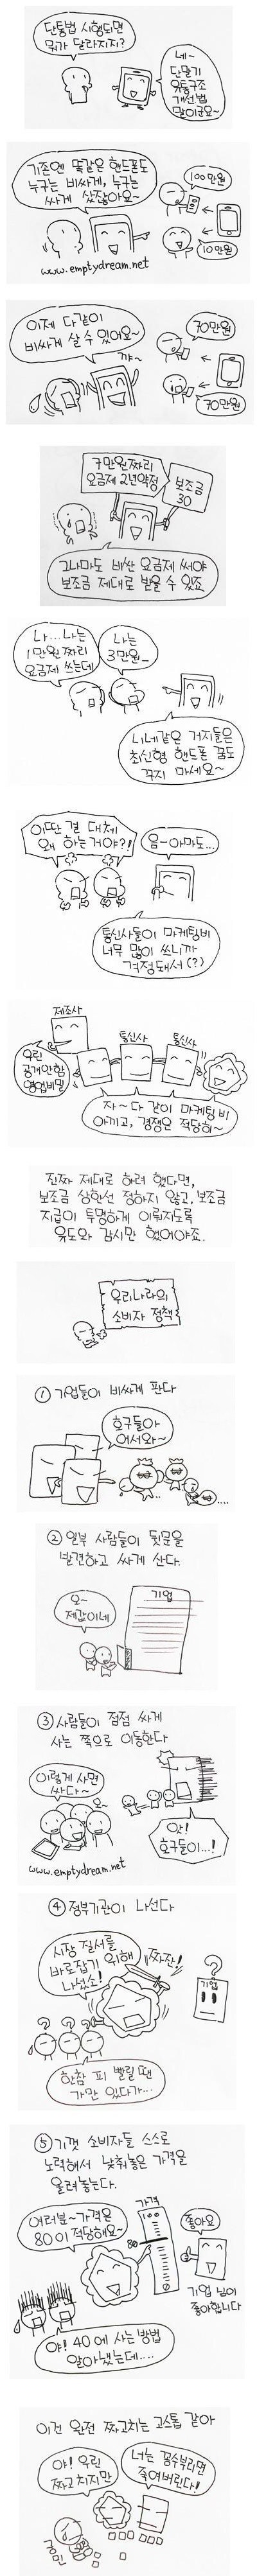 단통법 시행되면
뭐가 달라지지?
네~
단말기
유통구조
개선법
말이군요~
기존엔 똑같은 핸드폰도
누구는 비싸게, 누구는
싸게 샀잖아요~
100만원
10만원
www.emptydream.net
이제 다같이
비싸게 살 수 있어요~
꺄~
70만원
70만원
7만원짜리
요금제 2년약정
보조금
30
그나마도 비싼 요금제 써야
보조금 제대로 받을 수 있죠
나...나는
1만원 짜리
요금제 쓰는데
나는
3만원_
니네같은 거지들은
최신형 핸드폰 꿈도
꾸지 마세요~
이딴 걸 대체
왜 하는거야?!
음-아마도...
통신사들이 마케팅비
너무 많이 쓰니까
걱정돼서(?)
제조사
통신사
통신사
우린
공개안함
영업비밀
자~다 같이 마케팅비
아끼고, 경쟁은 적당히~
진짜 제대로 하려 했다면,
보조금 상한선 정하지 않고, 보조금
지급이 투명하게 이뤄지도록
유도와 감시만 했어야죠.
우리나라의
소비자 정책
① 기업들이 비싸게 판다
호구들아
어서와~
② 일부 사람들이 뒷문을
발견하고 싸게 산다.
기업
오~
제값이네
③ 사람들이 점점 싸게
사는 쪽으로 이동한다
이렇게 사면
싸다~
오~
앗!
호구들이...!
www.emptydream.net
④ 정부기관이 나선다
시장 질서를
바로잡기 위해
나섰소!
짜잔!
?
기업
? ? ?
한참 피 빨릴 땐
가만 있다가...
⑤ 기껏 소비자들 스스로
노력해서 낮춰놓은 가격을
올려놓는다.
여러분~가격은
80이 적당해요~
가격
100
80
좋아요
기업 님이
좋아합니다
야! 40에 사는 방법
알아냈는데....
이건 완전 짜고치는 고스톱 같아
야! 우린
짜고치지만
너는 꼼수부리면
죽여버린다!
국민